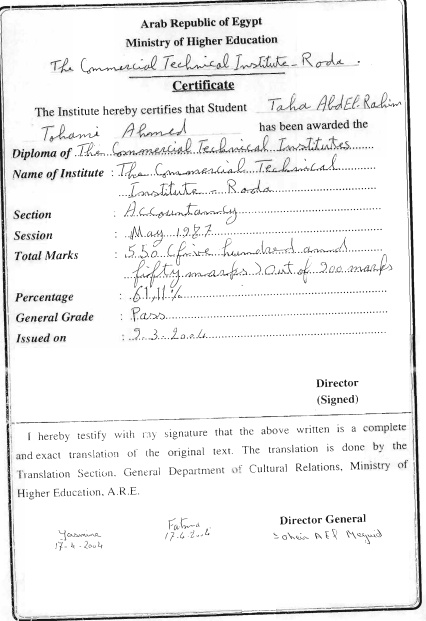 Arab Republic of Egypt
Ministry of Higher Education
The Commercial Technical Institute - Roda.
Certificate
The Institute hereby certifies that Student Taha AbdEl Rahim
Tohami Ahmed has been awarded the
Diploma of The Commercial Technical Institutes
Name of Institute : The Commercial Technical
Institute - Roda
Section : Accountancy
Session : May 1987
Total Marks : 550 (five hundred and
fifty marks) Out of 900 marks
Percentage : 61,11%
General Grade : Pass
Issued on : 2.3.2004
Director
(Signed)
I hereby testify with my signature that the above written is a complete
and exact translation of the original text. The translation is done by the
Translation Section, General Department of Cultural Relations, Ministry of
Higher Education, A.R.E.
Director General
17-4-2004
17.4.2004